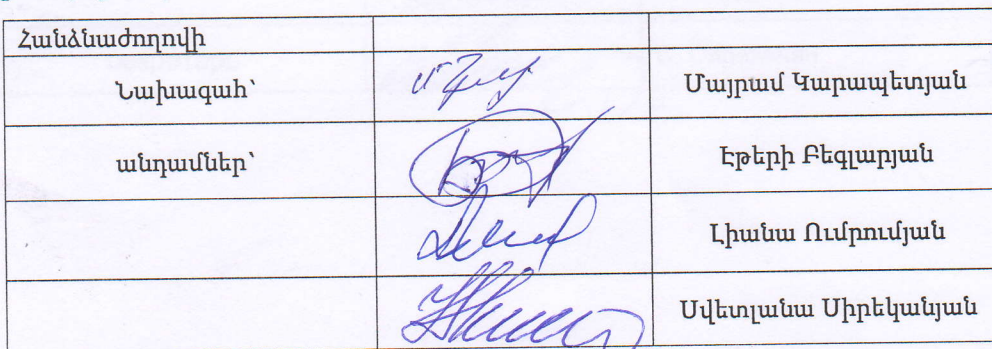 Հանձնաժողովի
Նախագահ՝ Մայրամ Կարապետյան
անդամներ՝ Էթերի Բեգլարյան
Լիանա Ումրումյան
Սվետլանա Սիրեկանյան